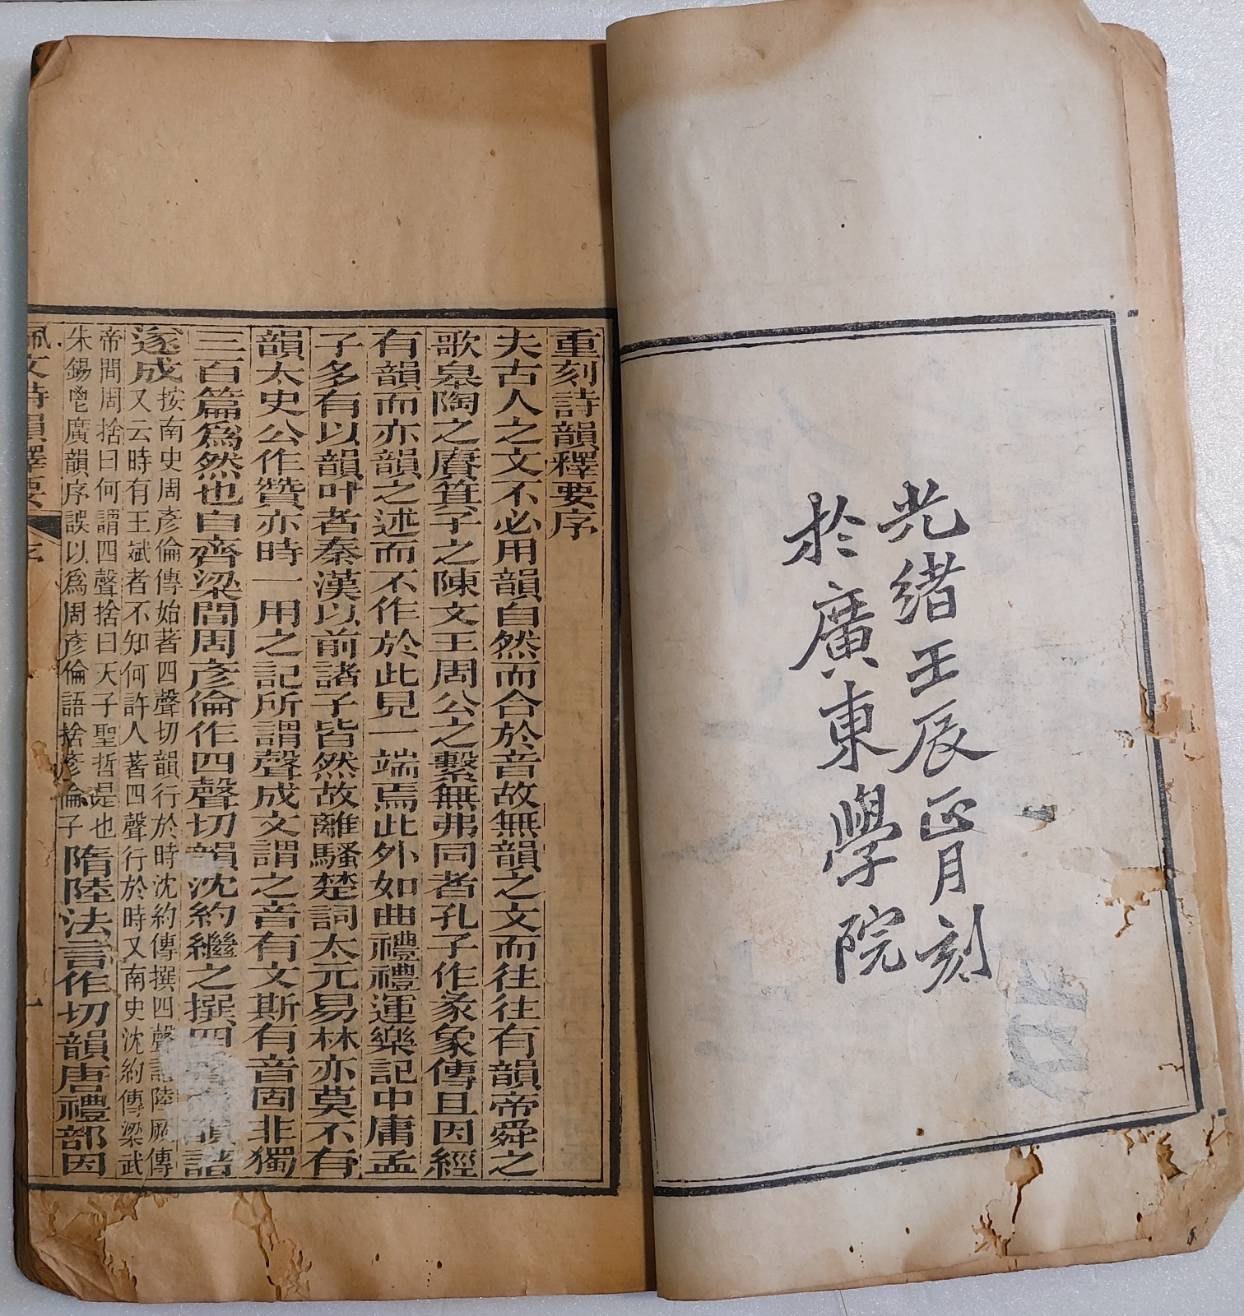 光緒壬辰正月刻
於廣東學院
重刻詩韻釋要序
夫古人之文不必用韻自然而合於音故無韻之文而往往有韻帝舜之
歌皋陶之賡箕子之陳文王周公之繫無弗同者孔子作彖象傳且因經
有韻而亦韻之述而不作於此見一端焉此外如曲禮禮運樂記中庸孟
子多有以韻叶者秦漢以前諸子皆然故離騷楚詞太元易林亦莫不有
韻太史公作贊亦時一用之記所謂聲成文謂之音有文斯有音固非獨
三百篇為然也自齊梁間周彥倫作四聲切韻沈約繼之撰四韻諸
遂成按南史周彥倫傳始著四聲切韻行於時沈約傳撰四聲譜陸厥傳
又云時有王斌者不知何許人著四聲行於時又南史沈約傳梁武
帝問周捨曰何謂四聲捨曰天子聖哲是也
朱錫鬯廣韻序誤以為周彥倫語捨彥倫子隋陸法言作切韻唐禮部因
佩文詩韻釋要 序 一